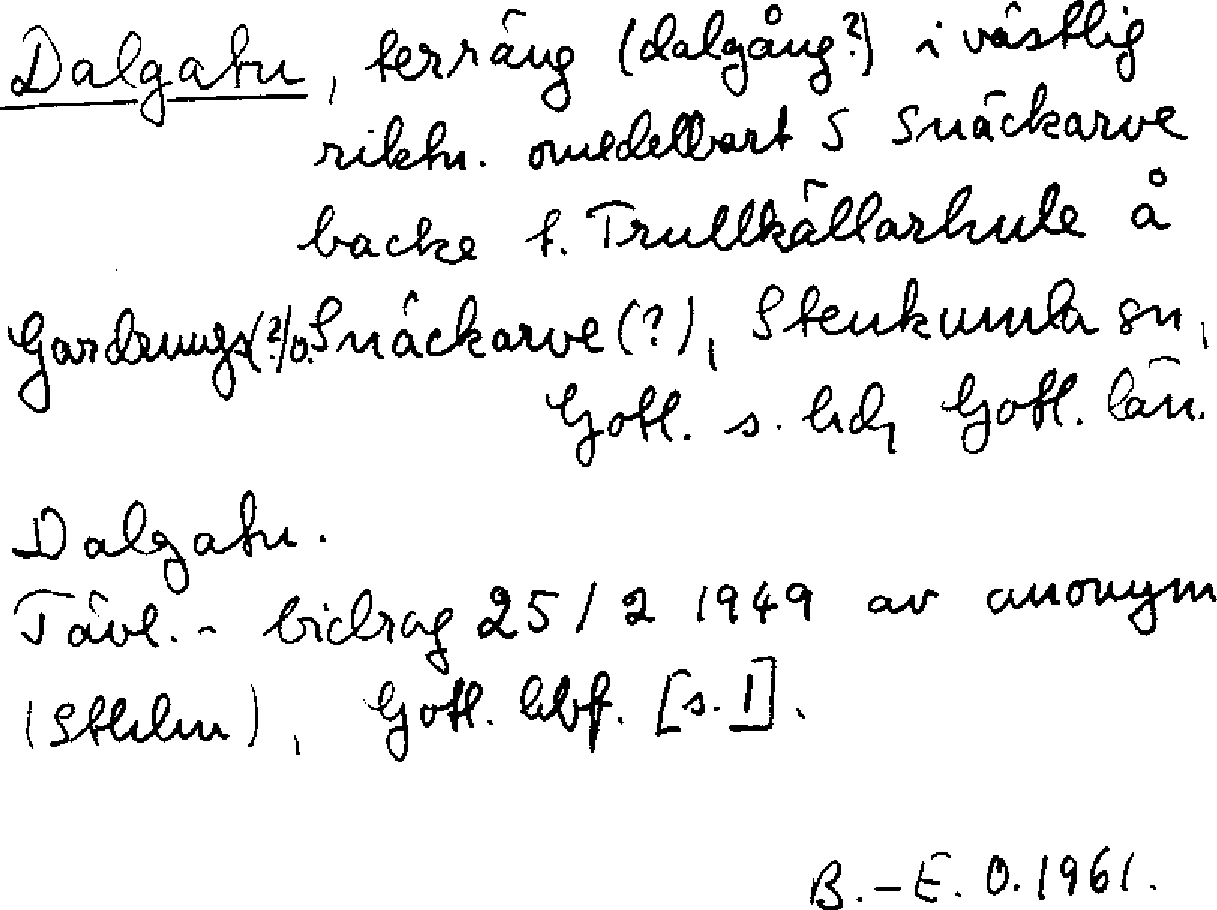 Dalgatu, terräng (dalgång?) i västlig
riktn. omedelbart S Snäckarve
backe t. Trullkällarhule å
Gardrungs(?) o. Snäckarve (?), Stenkumla sn,
Gotl. s. hd, Gotl. län.
Dalgatu.
Tävl.- bidrag 25/2 1949 av anonym
(Sthlm), Gotl. hbf. [s. 1].
B.-E. O. 1961.